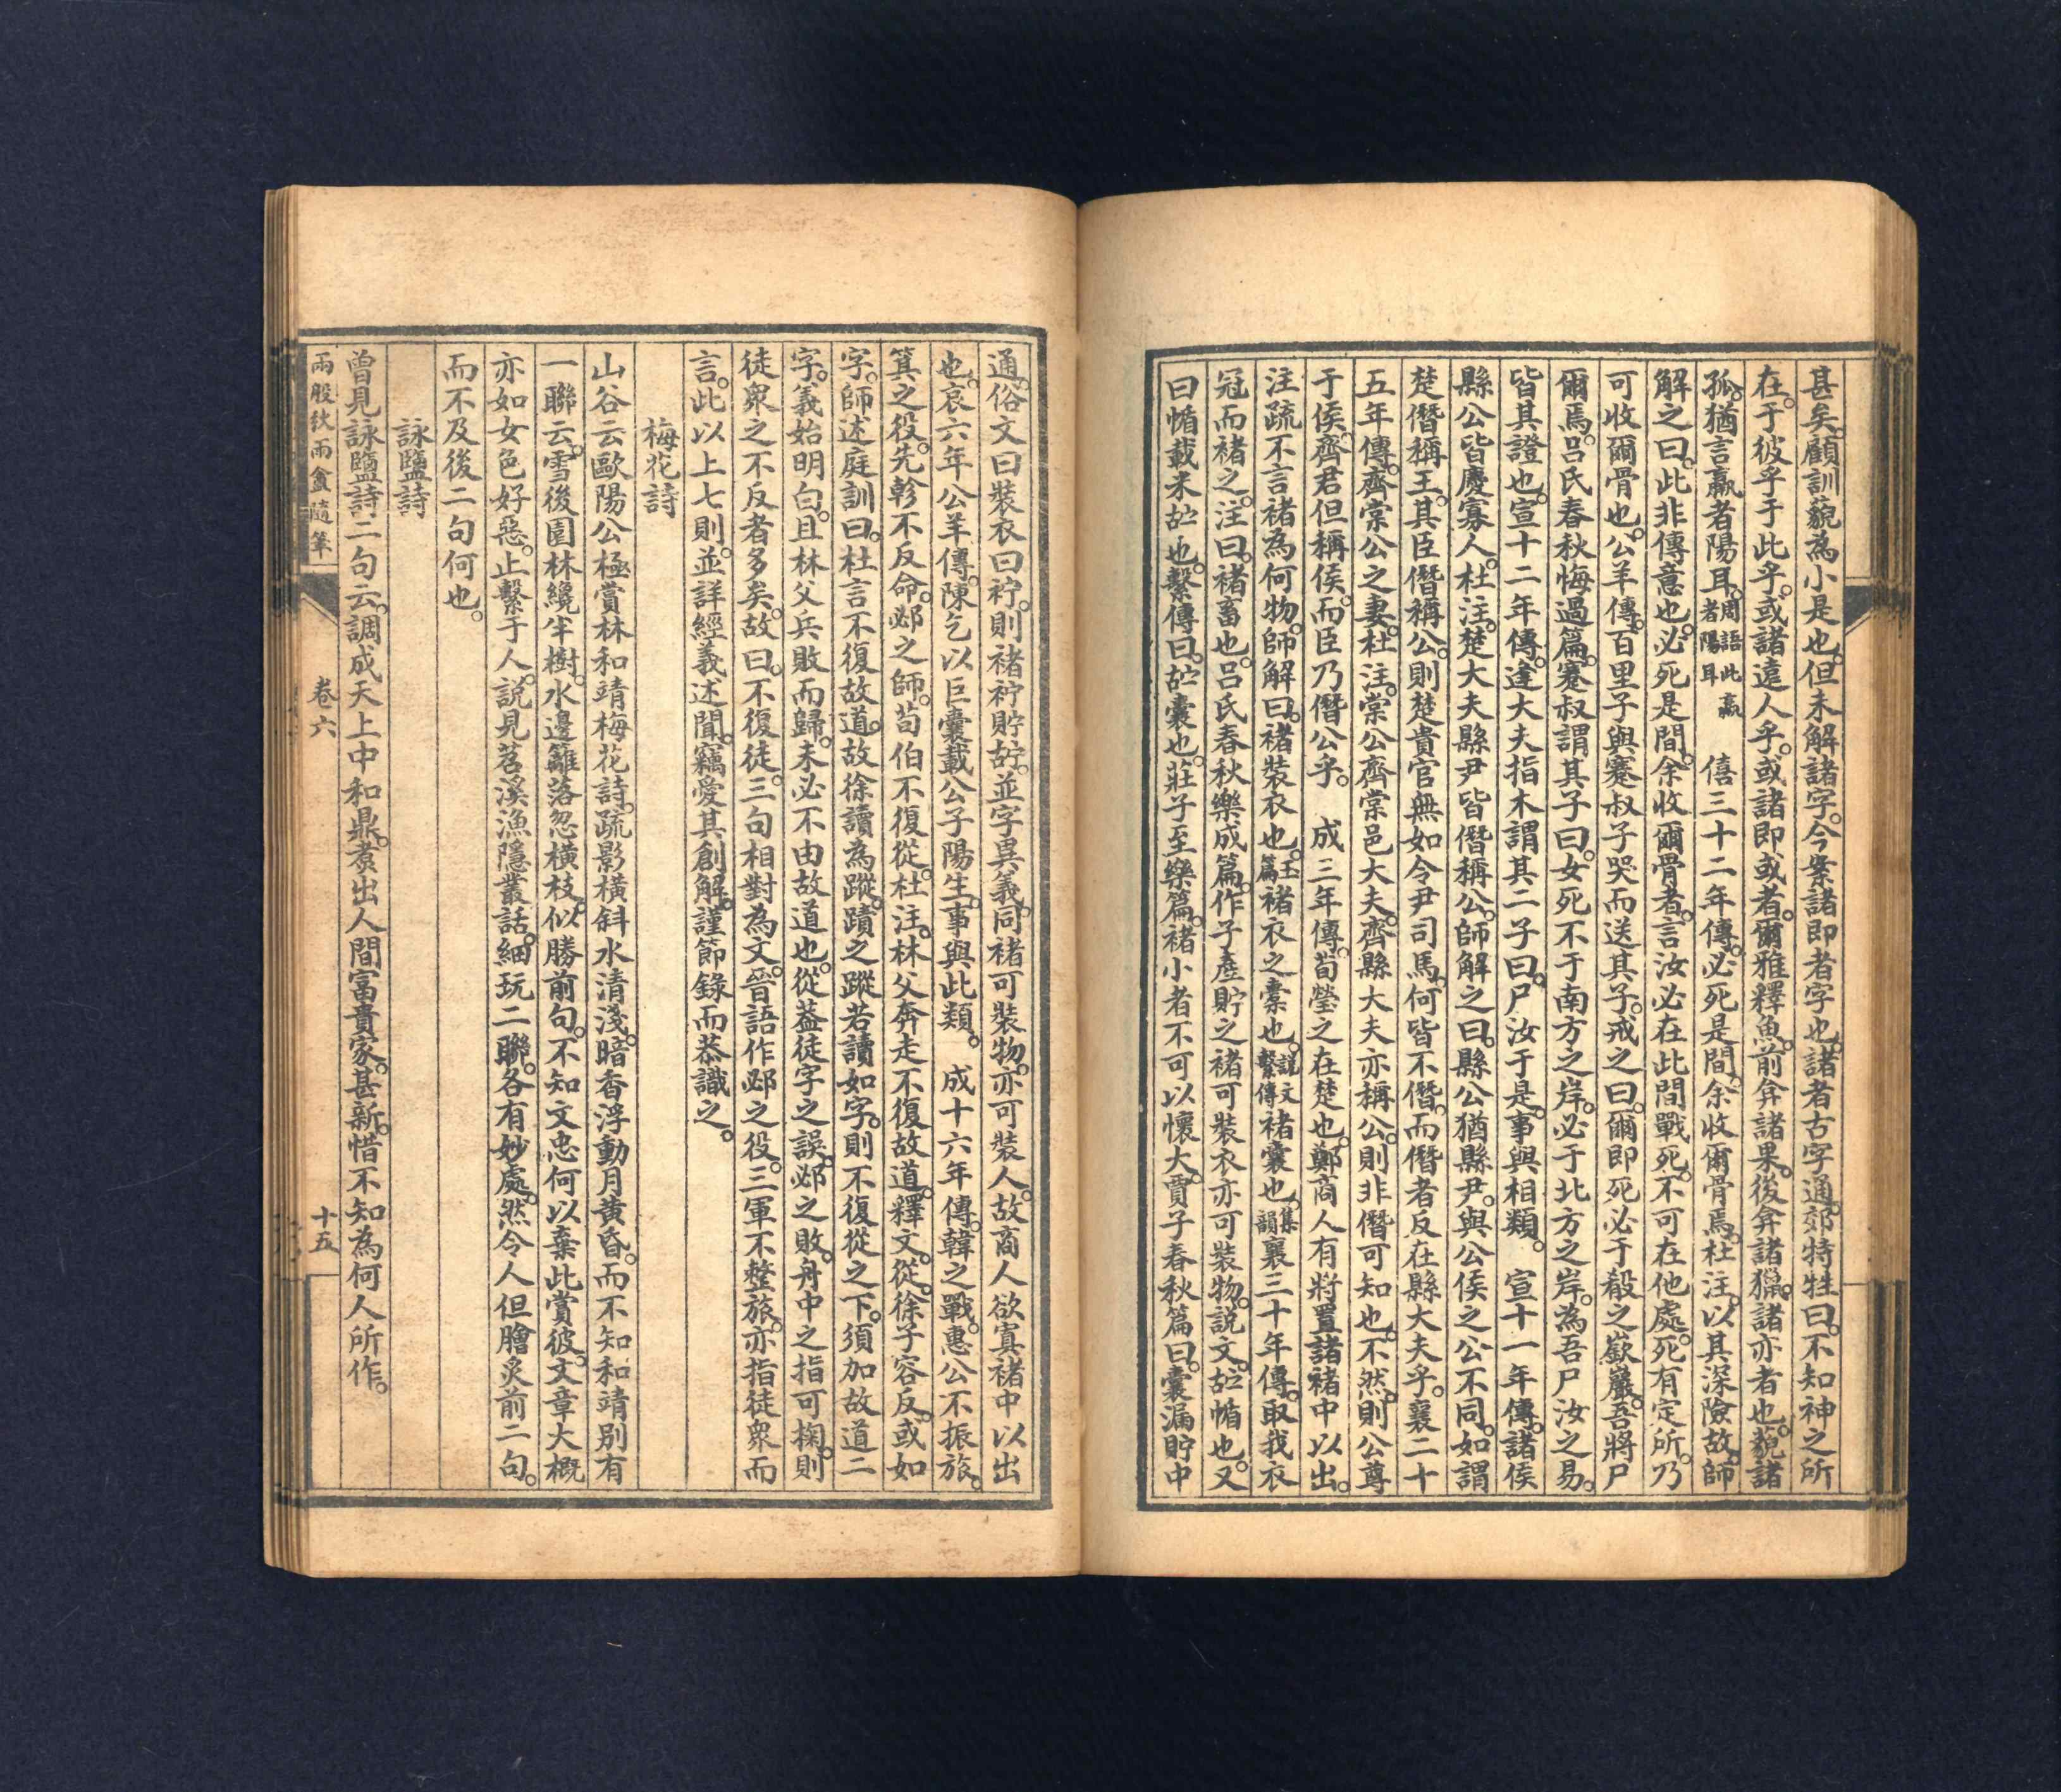 甚矣。顧訓藐為小是也。但未解諸字。今案諸即者字也。諸者古字通。郊特牲曰。不知神之所
在。于彼乎于此乎。或諸遠人乎。或諸即或者。爾雅釋魚。前弇諸果。後弇諸獵。諸亦者也。藐諸
孤。猶言羸者陽耳。周語此羸者陽耳　僖三十二年傳。必死是間。余收爾骨焉。杜注。以其深險故。師
解之曰。此非傳意也。必死是間。余收爾骨者。言汝必在此間戰死。不可在他處。死有定所。乃
可收爾骨也。公羊傳。百里子與蹇叔子哭而送其子。戒之曰。爾即死必于殽之嶔巖。吾將尸
爾焉。呂氏春秋悔過篇。蹇叔謂其子曰。女死不于南方之岸。必于北方之岸。為吾尸汝之易。
皆其證也。宣十二年傳。逢大夫指木謂其二子曰。尸汝于是。事與相類。　宣十一年傳。諸侯
縣公皆慶寡人。杜注。楚大夫縣尹皆僭稱公。師解之曰。縣公猶縣尹。與公侯之公不同。如謂
楚僭稱王。其臣僭稱公。則楚貴官無如令尹司馬。何皆不僭。而僭者反在縣大夫乎。襄二十
五年傳。齊棠公之妻。杜注。棠公齊棠邑大夫。齊縣大夫亦稱公。則非僭可知也。不然。則公尊
于侯。齊君但稱侯。而臣乃僭公乎。　成三年傳。荀瑩之在楚也。鄭商人有將置諸褚中以出。
注疏不言褚為何物。師解曰。褚裝衣也。玉篇褚衣之橐也。說文繫傳褚囊也。集韻襄三十年傳。取我衣
冠而褚之。注曰。褚畜也。呂氏春秋樂成篇。作子產貯之褚可裝衣亦可裝物。說文。𢂷㡒也。又
曰㡒載米𢂷也。繫傳曰。𢂷囊也。莊子至樂篇。褚小者不可以懷大。賈子春秋篇曰。囊漏貯中
通俗文曰裝衣曰䘢。則褚䘢貯𢂷。並字異義同褚可裝物。亦可裝人。故商人欲寘褚中以出
也。哀六年公羊傳。陳乞以巨囊載公子陽生。事與此類。　成十六年傳。韓之戰。惠公不振旅。
箕之役。先軫不反命。邲之師。荀伯不復從。杜注。林父奔走不復故道。釋文。從。徐子容反。或如
字。師述庭訓曰。杜言不復故道。故徐讀為蹤。蹟之蹤若讀如字。則不復從之下。須加故道二
字。義始明白。且林父兵敗而歸。未必不由故道也。從葢徒字之誤。邲之敗。舟中之指可掬。則
徒衆之不反者多矣。故曰。不復徒。三句相對為文。晉語作邲之役。三軍不整旅。亦指徒衆而
言。此以上七則。並詳經義述聞。竊愛其創解。謹節錄而恭識之。
梅花詩
山谷云歐陽公極賞林和靖梅花詩。疏影橫斜水清淺。暗香浮動月黄昏。而不知和靖別有
一聯云。雪後園林纔半樹。水邊籬落忽橫枝。似勝前句。不知文忠何以棄此賞彼。文章大概
亦如女色好惡。止繫于人。說見苕溪漁隱叢話。細玩二聯。各有妙處。然今人但膾炙前二句。
而不及後二句何也。
詠鹽詩
曾見詠鹽詩二句云。調成天上中和鼎。煑出人間富貴家。甚新。惜不知為何人所作。
兩般秋雨盦隨筆　卷六　十五